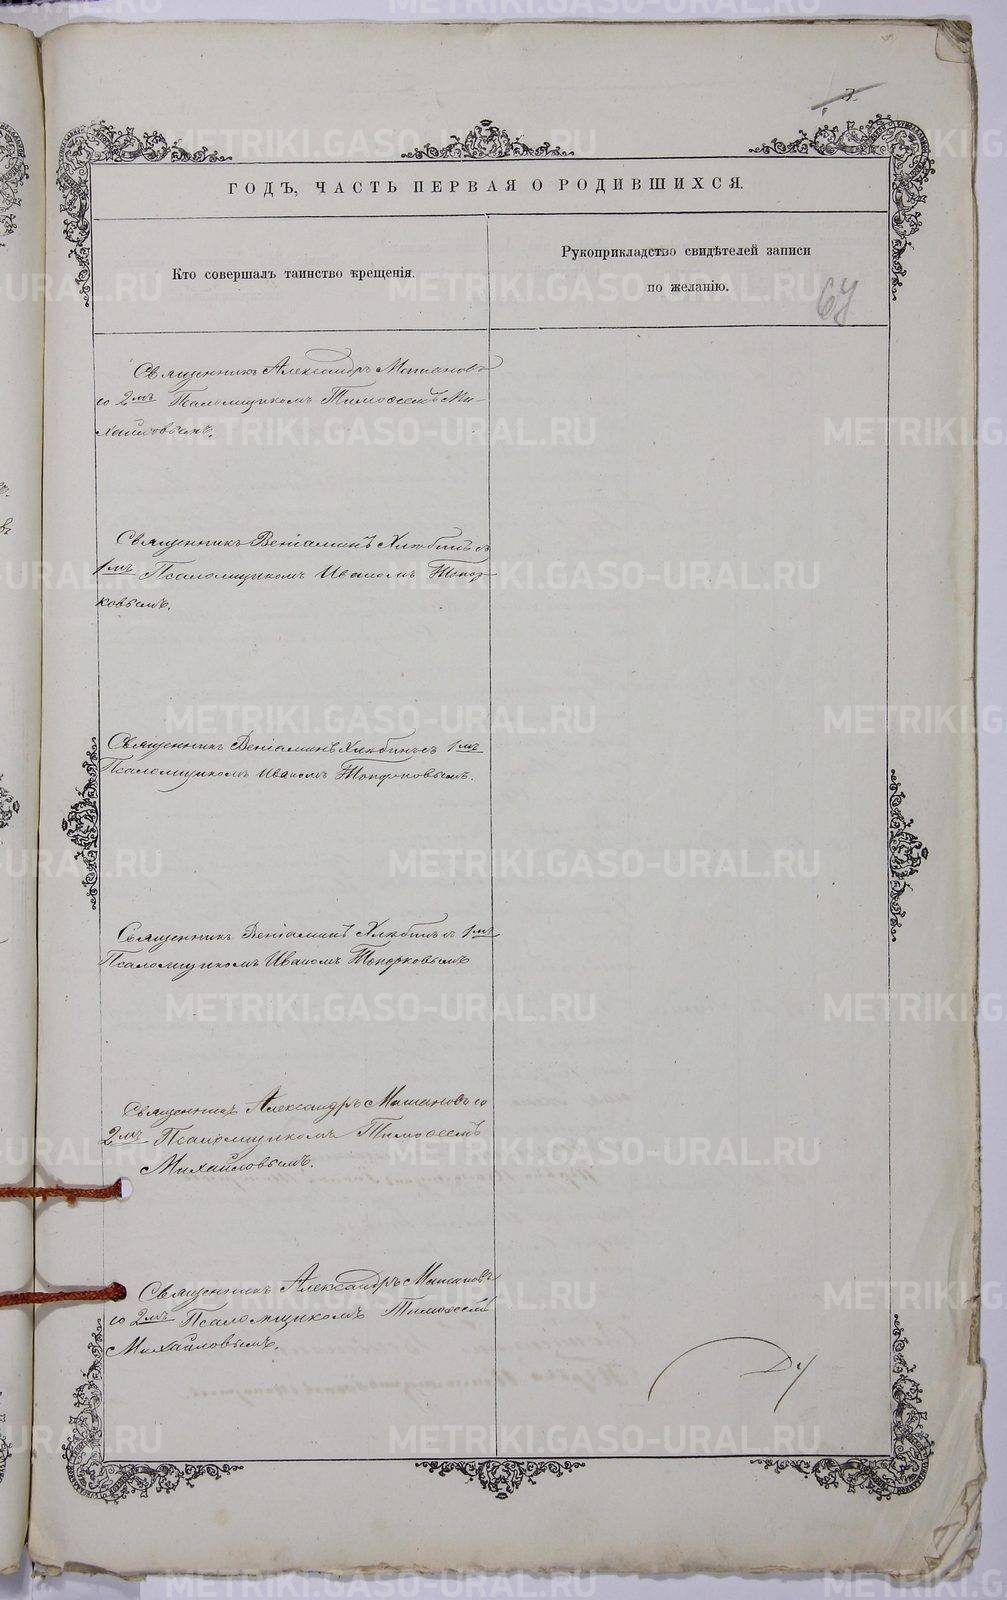 3
ГОДЪ, ЧАСТЬ ПЕРВАЯ О РОДИВШИХСЯ.
Кто совершалъ таинство крещенія.
Рукоприкладство свидѣтелей записи
по желанію.
Священникъ Александръ
со 2мъ Псаломщикомъ Тимоѳеемъ Ми-
хайловымъ.
Священникъ Веніаминъ Хлѣбинъ съ
1мъ Псаломщикомъ Иваномъ Топор-
ковымъ.
Священникъ Веніаминъ Хлѣбинъ съ 1мъ
Псаломщикомъ Иваномъ Топорковымъ.
Священникъ Веніаминъ Хлѣбинъ съ 1мъ
Псаломщикомъ Иваномъ Топорковымъ
Священникъ Александръ со
2мъ Псаломщикомъ Тимоѳеемъ
Михайловымъ.
Священникъ Александръ
со 2мъ Псаломщикомъ Тимоѳеемъ
Михайловымъ.
METRIKI.GASO-URAL.RU